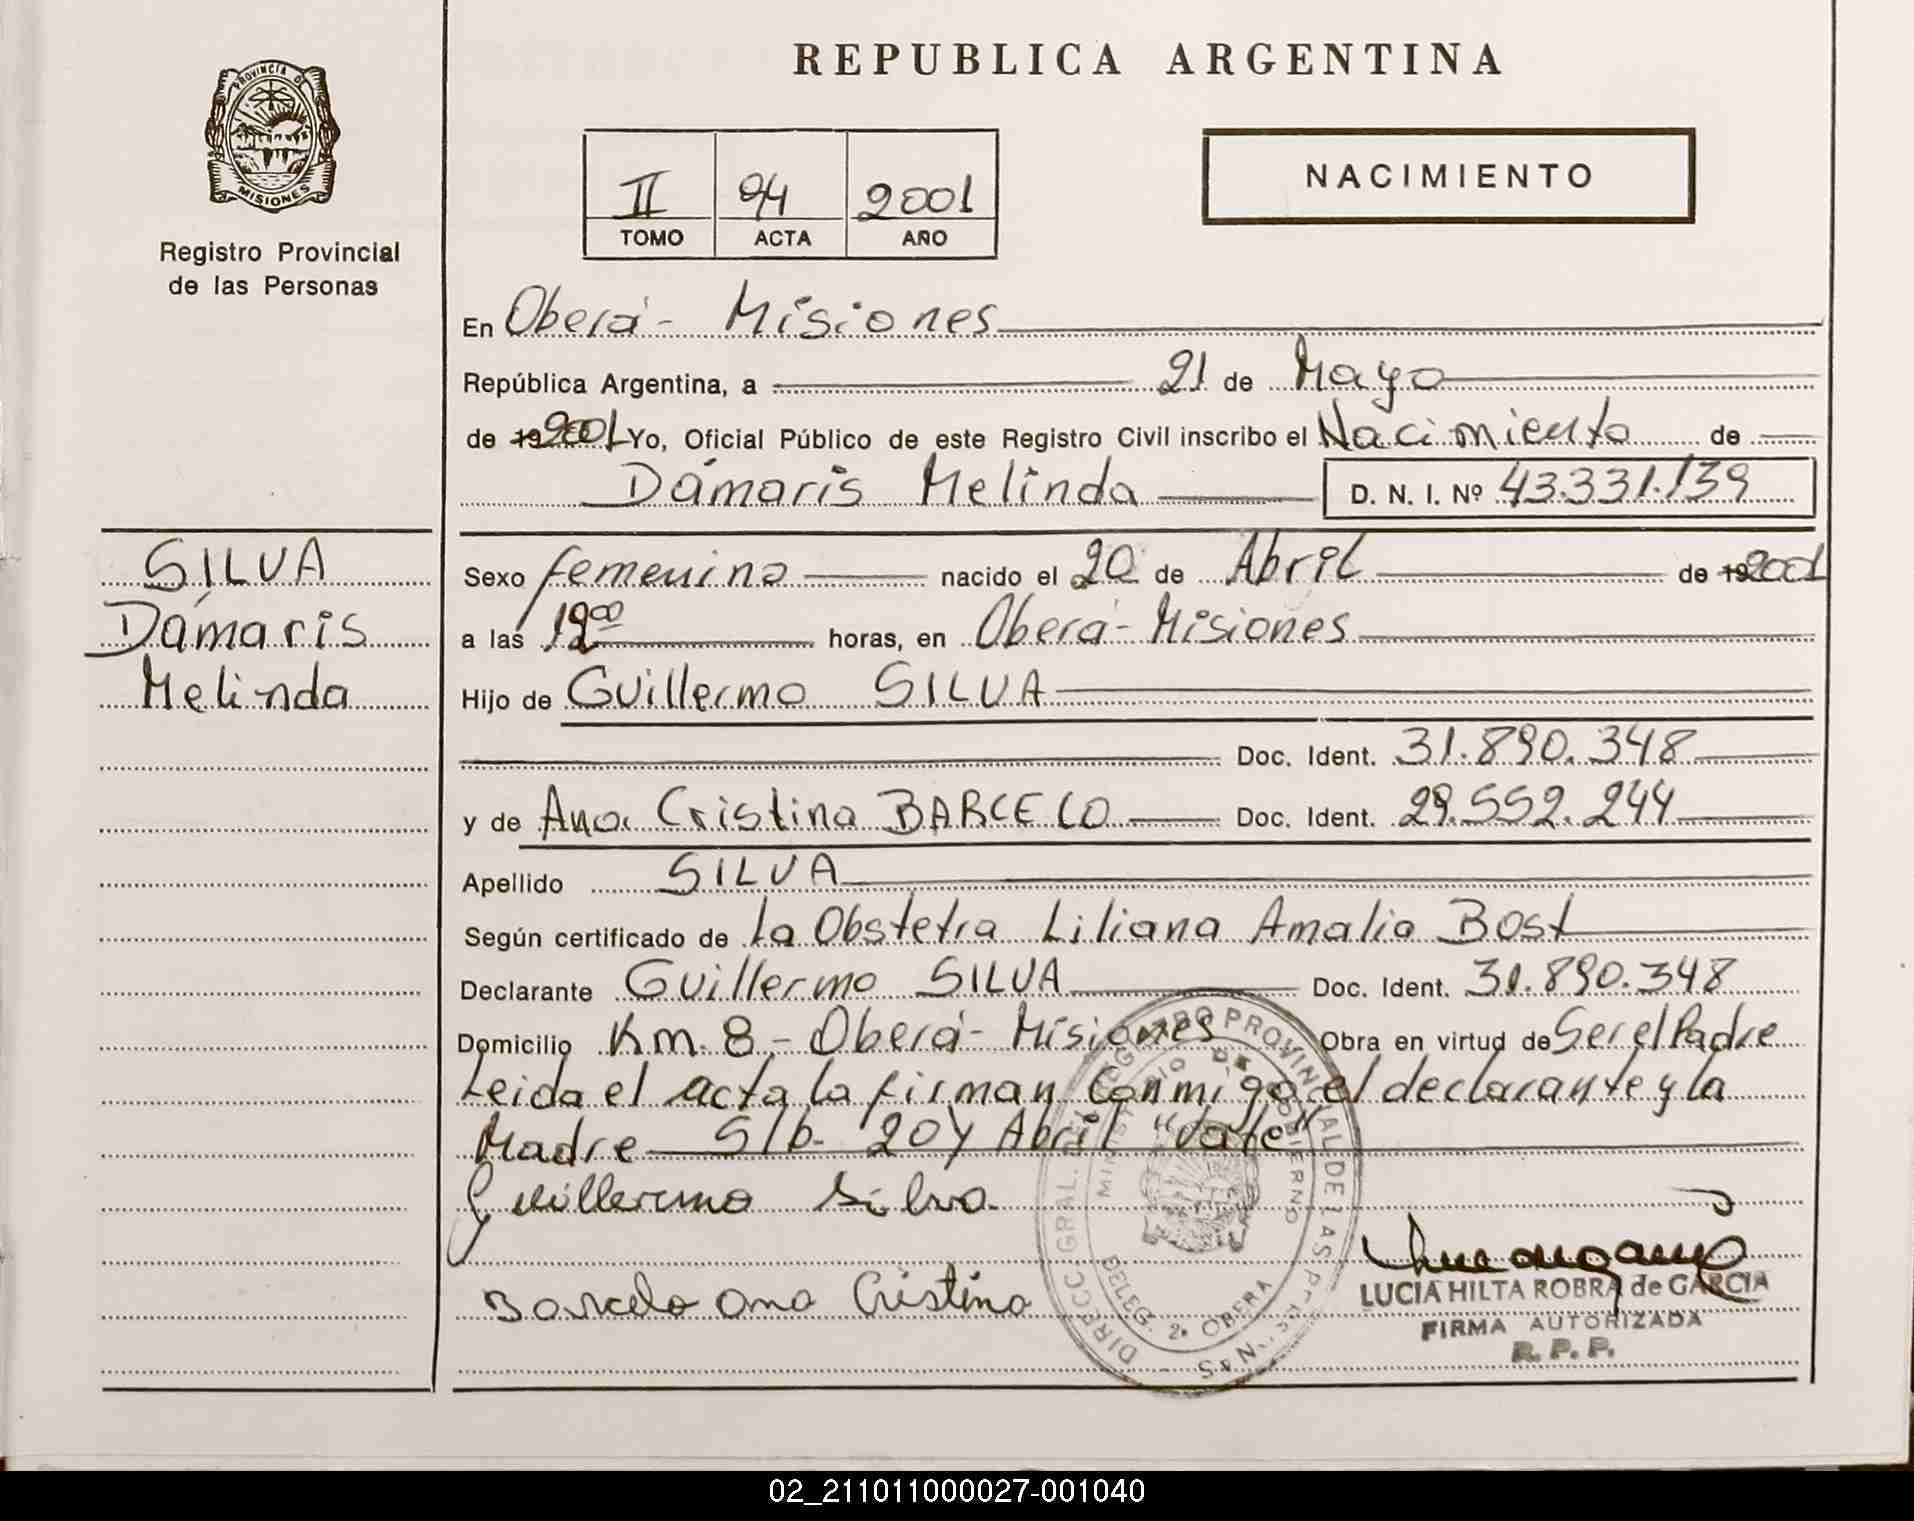 REPUBLICA ARGENTINA
PROVINCIA DE
MISIONES
Registro Provincial
de las Personas
II 94 2001
TOMO ACTA AÑO
NACIMIENTO
En Oberá - Misiones
República Argentina, a 21 de Mayo
de 19 2001 Yo, Oficial Público de este Registro Civil inscribo el Nacimiento de
Dámaris Melinda D. N. I. Nº 43.331.139
SILVA
Dámaris
Melinda
Sexo femenino nacido el 20 de Abril de 19 2001
a las 12 00 horas, en Oberá - Misiones
Hijo de Guillermo SILVA
Doc. Ident. 31.890.348
y de Ana Cristina BARCELO Doc. Ident. 29.552.244
Apellido SILVA
Según certificado de la Obstetra Liliana Amalia Bost
Declarante Guillermo SILVA Doc. Ident. 31.890.348
Domicilio Km. 8 - Oberá - Misiones Obra en virtud de Ser el Padre
Leida el acta la firman conmigo el declarante y la
Madre S/b. "20 y Abril "Vale"
Guillermo Silva
Barcelo Ana Cristina
DIRECC. GRAL. DEL REGISTRO PROVINCIAL DE LAS PERSONAS
MINISTERIO DE GOBIERNO
DELEG. 2ª OBERA
LUCIA HILTA ROBRA de GARCIA
FIRMA AUTORIZADA
R. P. P.
02_211011000027-001040